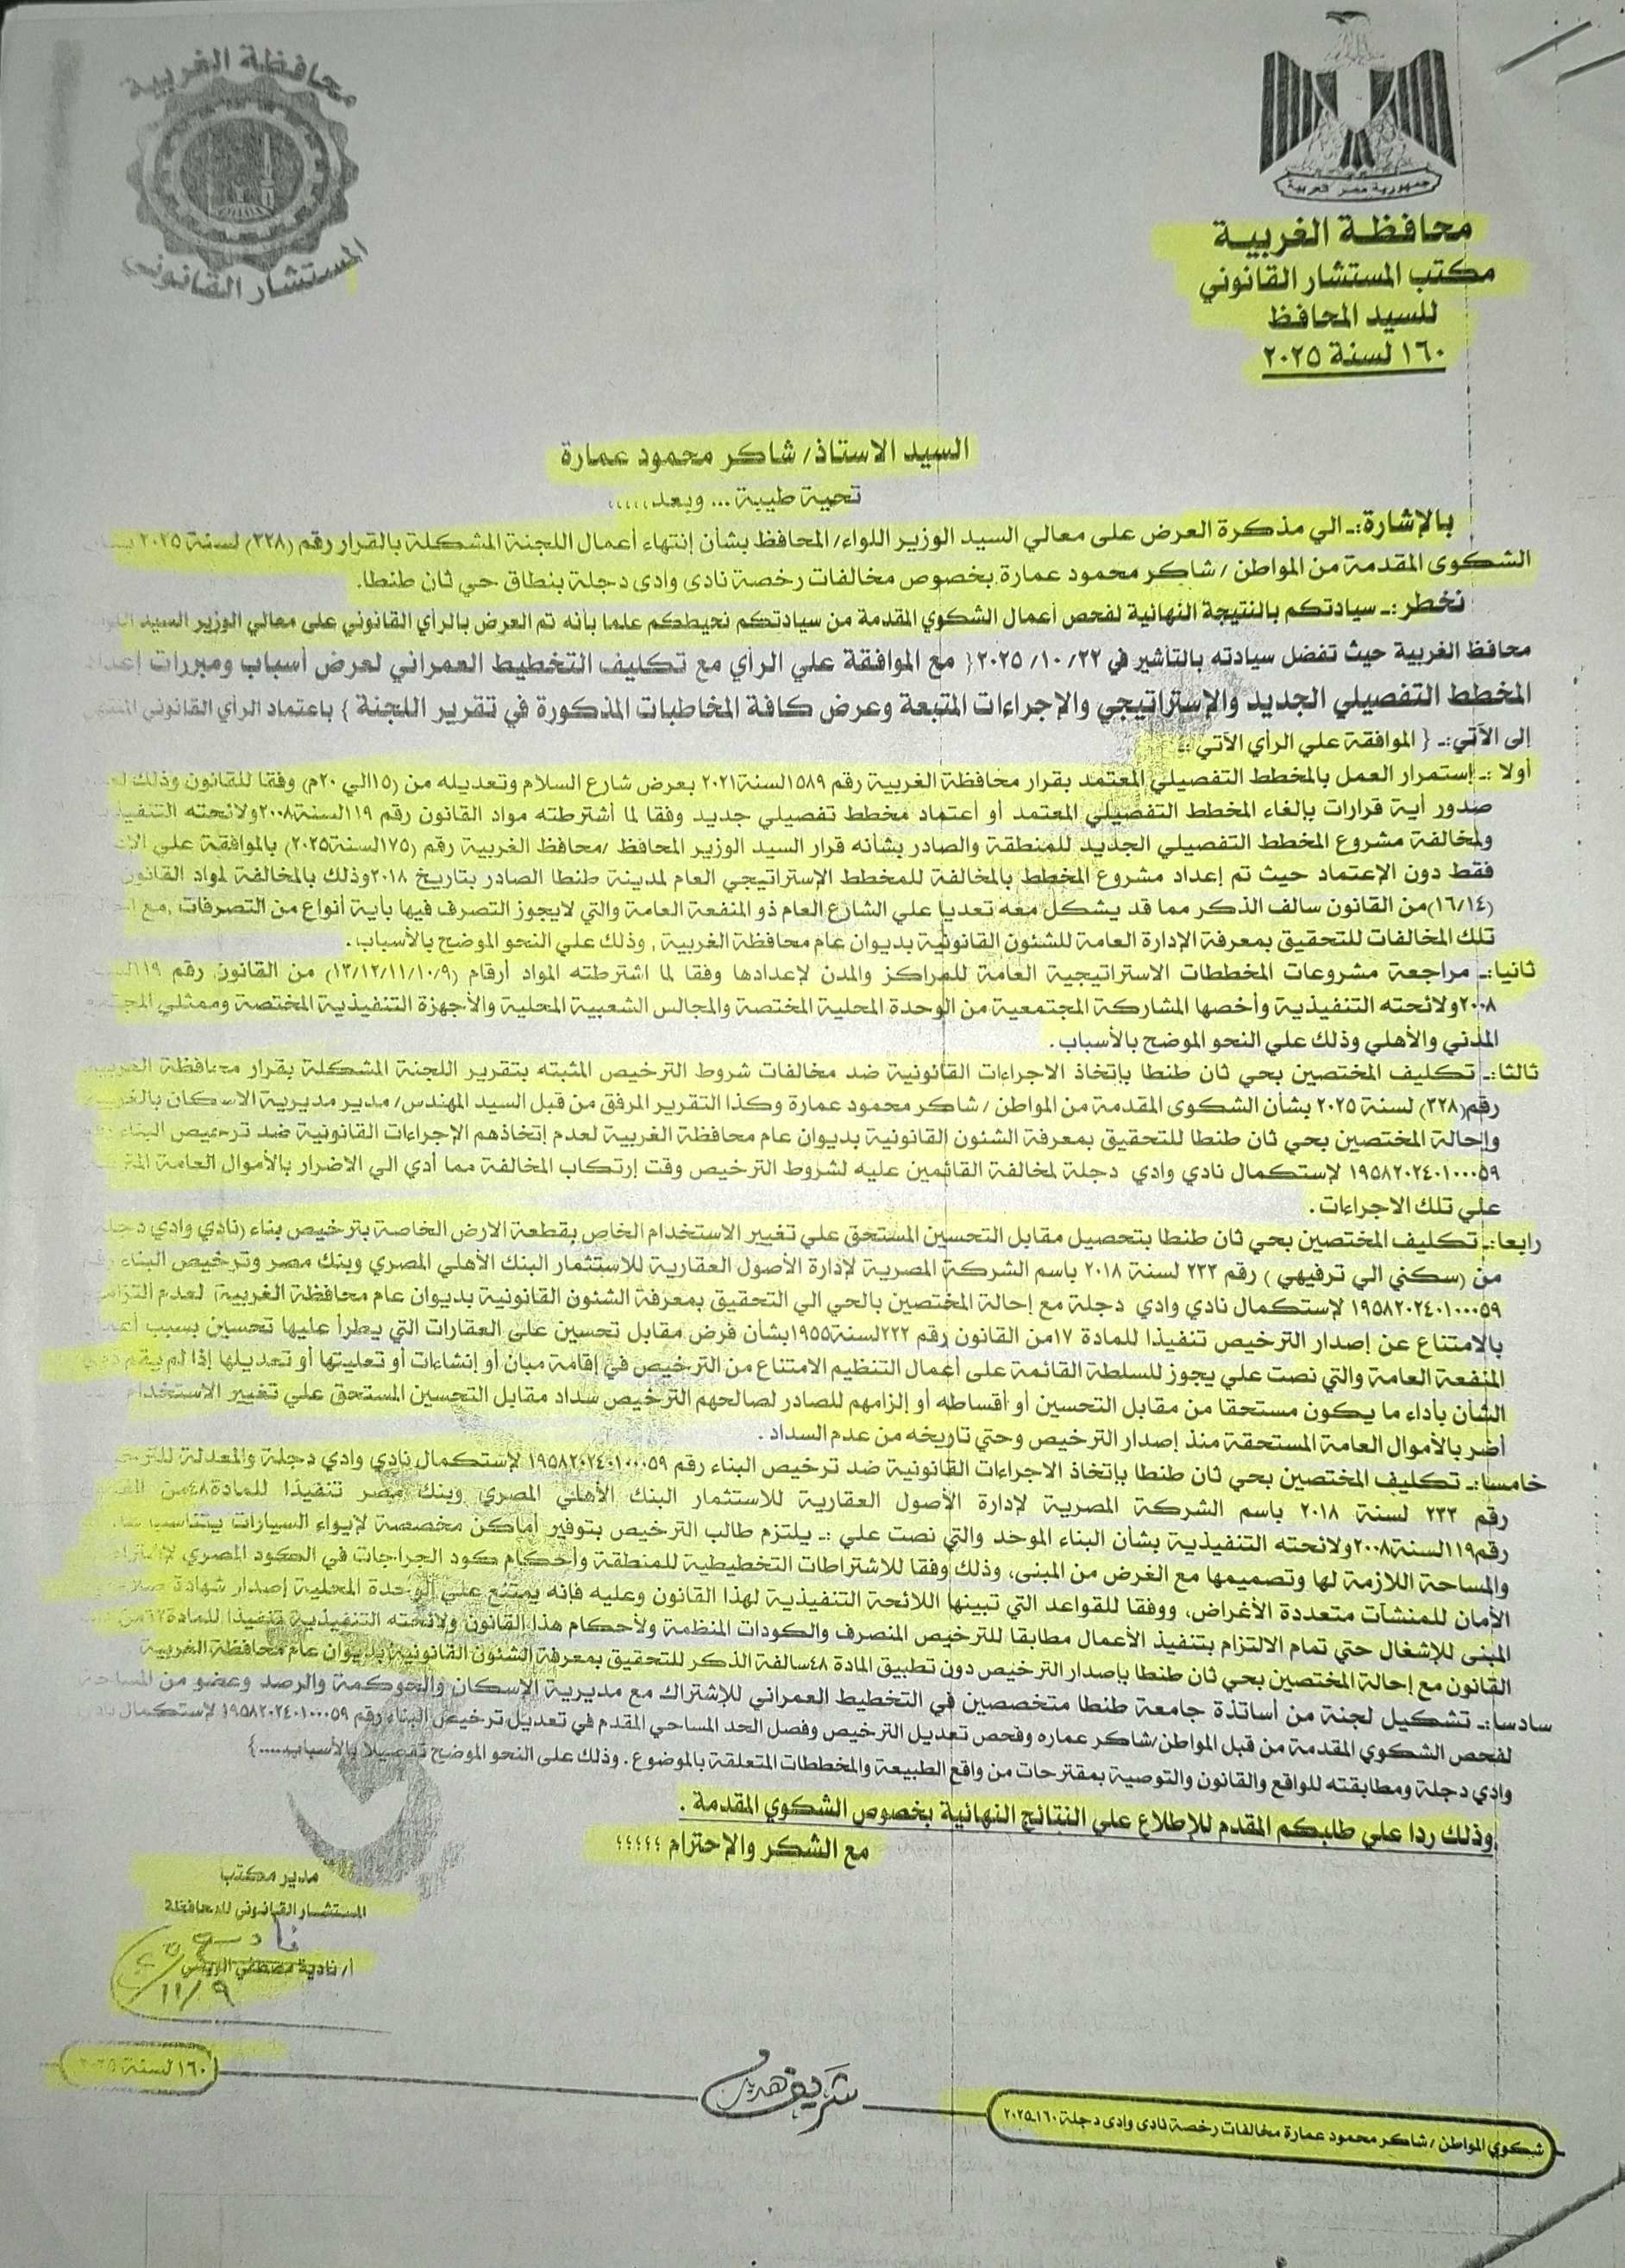 محافظة الغربية
المستشار القانوني
جمهورية مصر العربية
محافظة الغربية
مكتب المستشار القانوني
للسيد المحافظ
١٦٠ لسنة ٢٠٢٥
السيد الاستاذ/ شاكر محمود عمارة
تحية طيبة ... وبعد،،،،،
بالإشارة:ـ الي مذكرة العرض على معالي السيد الوزير اللواء/ المحافظ بشأن إنتهاء أعمال اللجنة المشكلة بالقرار رقم (٣٢٨) لسنة ٢٠٢٥
الشكوى المقدمة من المواطن / شاكر محمود عمارة بخصوص مخالفات رخصة نادى وادى دجلة بنطاق حي ثان طنطا.
نخطر:ـ سيادتكم بالنتيجة النهائية لفحص أعمال الشكوي المقدمة من سيادتكم نحيطكم علما بأنه تم العرض بالرأي القانوني على معالي الوزير السيد
محافظ الغربية حيث تفضل سيادته بالتأشير في ٢٢ /١٠ /٢٠٢٥ { مع الموافقة علي الرأي مع تكليف التخطيط العمراني لعرض أسباب ومبررات إعداد
المخطط التفصيلي الجديد والإستراتيجي والإجراءات المتبعة وعرض كافة المخاطبات المذكورة في تقرير اللجنة } باعتماد الرأي القانوني المنتهي
إلى الآتي:ـ { الموافقة علي الرأي الآتي :ـ
أولا :ـ إستمرار العمل بالمخطط التفصيلي المعتمد بقرار محافظة الغربية رقم ١٥٨٩لسنة٢٠٢١ بعرض شارع السلام وتعديله من (١٥الي ٢٠م) وفقا للقانون وذلك
صدور أية قرارات بإلغاء المخطط التفصيلي المعتمد أو أعتماد مخطط تفصيلي جديد وفقا لما أشترطته مواد القانون رقم ١١٩لسنة٢٠٠٨ ولائحته
ولمخالفة مشروع المخطط التفصيلي الجديد للمنطقة والصادر بشأنه قرار السيد الوزير المحافظ /محافظ الغربية رقم (١٧٥لسنة٢٠٢٥) بالموافقة علي
فقط دون الإعتماد حيث تم إعداد مشروع المخطط بالمخالفة للمخطط الإستراتيجي العام لمدينة طنطا الصادر بتاريخ ٢٠١٨ وذلك بالمخالفة لمواد القانون
(١٦/١٤)من القانون سالف الذكر مما قد يشكل معه تعديا علي الشارع العام ذو المنفعة العامة والتي لايجوز التصرف فيها بأية أنواع من التصرفات ,مع
تلك المخالفات للتحقيق بمعرفة الإدارة العامة للشئون القانونية بديوان عام محافظة الغربية , وذلك علي النحو الموضح بالأسباب.
ثانيا:ـ مراجعة مشروعات المخططات الاستراتيجية العامة للمراكز والمدن لإعدادها وفقا لما اشترطته المواد أرقام (١٣/١٢/١١/١٠/٩) من القانون رقم
٢٠٠٨ ولائحته التنفيذية وأخصها المشاركة المجتمعية من الوحدة المحلية المختصة والمجالس الشعبية المحلية والأجهزة التنفيذية المختصة وممثلي
المدني والأهلي وذلك علي النحو الموضح بالأسباب.
ثالثا:ـ تكليف المختصين بحي ثان طنطا بإتخاذ الاجراءات القانونية ضد مخالفات شروط الترخيص المثبته بتقرير اللجنة المشكلة بقرار محافظة الغربية
رقم(٣٢٨) لسنة ٢٠٢٥ بشأن الشكوى المقدمة من المواطن / شاكر محمود عمارة وكذا التقرير المرفق من قبل السيد المهندس/ مدير مديرية الاسكان بالغربية
وإحالة المختصين بحي ثان طنطا للتحقيق بمعرفة الشئون القانونية بديوان عام محافظة الغربية لعدم إتخاذهم الإجراءات القانونية ضد ترخيص البناء رقم
١٩٥٨٢٠٢٤٠١٠٠٠٥٩ لإستكمال نادي وادي دجلة لمخالفة القائمين عليه لشروط الترخيص وقت إرتكاب المخالفة مما أدي الي الاضرار بالأموال العامة
علي تلك الاجراءات.
رابعا:ـ تكليف المختصين بحي ثان طنطا بتحصيل مقابل التحسين المستحق علي تغيير الاستخدام الخاص بقطعة الارض الخاصة بترخيص بناء (نادي وادي دجلة
من (سكني الي ترفيهي ) رقم ٢٣٣ لسنة ٢٠١٨ باسم الشركة المصرية لإدارة الأصول العقارية للاستثمار البنك الأهلي المصري وبنك مصر وترخيص البناء
١٩٥٨٢٠٢٤٠١٠٠٠٥٩ لإستكمال نادي وادي دجلة مع إحالة المختصين بالحي الي التحقيق بمعرفة الشئون القانونية بديوان عام محافظة الغربية لعدم
بالامتناع عن إصدار الترخيص تنفيذا للمادة ١٧من القانون رقم ٢٢٢لسنة١٩٥٥بشأن فرض مقابل تحسين علي العقارات التي يطرأ عليها تحسين بسبب
المنفعة العامة والتي نصت علي يجوز للسلطة القائمة على أعمال التنظيم الامتناع من الترخيص في إقامة مبان أو إنشاءات أو تعليتها أو تعديلها إذا لم يقم
الشأن بأداء ما يكون مستحقا من مقابل التحسين أو أقساطه أو إلزامهم للصادر لصالحهم الترخيص سداد مقابل التحسين المستحق علي تغيير الاستخدام
أضر بالأموال العامة المستحقة منذ إصدار الترخيص وحتي تاريخه من عدم السداد .
خامسا:ـ تكليف المختصين بحي ثان طنطا بإتخاذ الاجراءات القانونية ضد ترخيص البناء رقم ١٩٥٨٢٠٢٤٠١٠٠٠٥٩ لإستكمال نادي وادي دجلة والمعدلة
رقم ٢٣٣ لسنة ٢٠١٨ باسم الشركة المصرية لإدارة الأصول العقارية للاستثمار البنك الأهلي المصري وبنك مصر تنفيذا للمادة٤٨من
رقم١١٩لسنة٢٠٠٨ولائحته التنفيذية بشأن البناء الموحد والتي نصت علي :ـ يلتزم طالب الترخيص بتوفير أماكن مخصصة لإيواء السيارات يتناسب
والمساحة اللازمة لها وتصميمها مع الغرض من المبنى، وذلك وفقا للاشتراطات التخطيطية للمنطقة وأحكام كود الجراجات في الكود المصري
الأمان للمنشآت متعددة الأغراض، ووفقا للقواعد التي تبينها اللائحة التنفيذية لهذا القانون وعليه فإنه يمتنع علي الوحدة المحلية إصدار شهادة
المبنى للإشغال حتي تمام الالتزام بتنفيذ الأعمال مطابقا للترخيص المنصرف والكودات المنظمة ولأحكام هذا القانون ولائحته التنفيذية تنفيذا
القانون مع إحالة المختصين بحي ثان طنطا بإصدار الترخيص دون تطبيق المادة ٤٨سالفة الذكر للتحقيق بمعرفة الشئون القانونية بديوان عام محافظة الغربية
سادسا:ـ تشكيل لجنة من أساتذة جامعة طنطا متخصصين في التخطيط العمراني للإشتراك مع مديرية الإسكان والحوكمة والرصد وعضو من المساحة
لفحص الشكوي المقدمة من قبل المواطن/شاكر عماره وفحص تعديل الترخيص وفصل الحد المساحي المقدم في تعديل ترخيص البناء رقم ١٩٥٨٢٠٢٤٠١٠٠٠٥٩ لإستكمال
وادي دجلة ومطابقته للواقع والقانون والتوصية بمقترحات من واقع الطبيعة والمخططات المتعلقة بالموضوع . وذلك على النحو الموضح تفصيلا بالأسباب....}
وذلك ردا علي طلبكم المقدم للإطلاع علي النتائج النهائية بخصوص الشكوي المقدمة .
مع الشكر والاحترام ؛؛؛؛؛
مدير مكتب
المستشار القانوني للمحافظة
أ/ نادية مصطفي
١١/٩
١٦٠ لسنة ٢٠٢٥
شريف
شبكوي المواطن / شاكر محمود عمارة مخالفات رخصة نادى وادى دجلة ١٦٠ـ٢٠٢٥